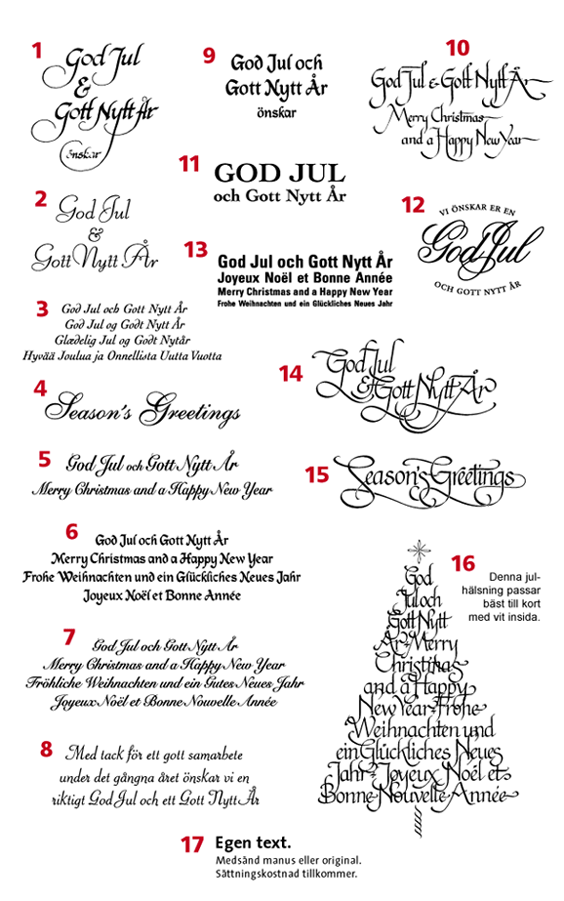 1
God Jul
&
Gott Nytt År
önskar
2
God Jul
&
Gott Nytt År
3
God Jul och Gott Nytt År
God Jul og Godt Nytt År
Glædelig Jul og Godt Nytår
Hyvää Joulua ja Onnellista Uutta Vuotta
4
Season's Greetings
5
God Jul och Gott Nytt År
Merry Christmas and a Happy New Year
6
God Jul och Gott Nytt År
Merry Christmas and a Happy New Year
Frohe Weihnachten und ein Glückliches Neues Jahr
Joyeux Noël et Bonne Année
7
God Jul och Gott Nytt År
Merry Christmas and a Happy New Year
Fröhliche Weihnachten und ein Gutes Neues Jahr
Joyeux Noël et Bonne Nouvelle Année
8
Med tack för ett gott samarbete
under det gångna året önskar vi en
riktigt God Jul och ett Gott Nytt År
9
God Jul och
Gott Nytt År
önskar
10
God Jul & Gott Nytt År
Merry Christmas
and a Happy New Year
11
GOD JUL
och Gott Nytt År
12
VI ÖNSKAR ER EN
God Jul
OCH GOTT NYTT ÅR
13
God Jul och Gott Nytt År
Joyeux Noël et Bonne Année
Merry Christmas and a Happy New Year
Frohe Weihnachten und ein Glückliches Neues Jahr
14
God Jul
& Gott Nytt År
15
Season's Greetings
16
Denna jul-
hälsning passar
bäst till kort
med vit insida.
God
Jul och
Gott Nytt
År · Merry
Christmas
and a Happy
New Year · Frohe
Weihnachten und
ein Glückliches Neues
Jahr · Joyeux Noël et
Bonne Nouvelle Année
17
Egen text.
Medsänd manus eller original.
Sättningskostnad tillkommer.